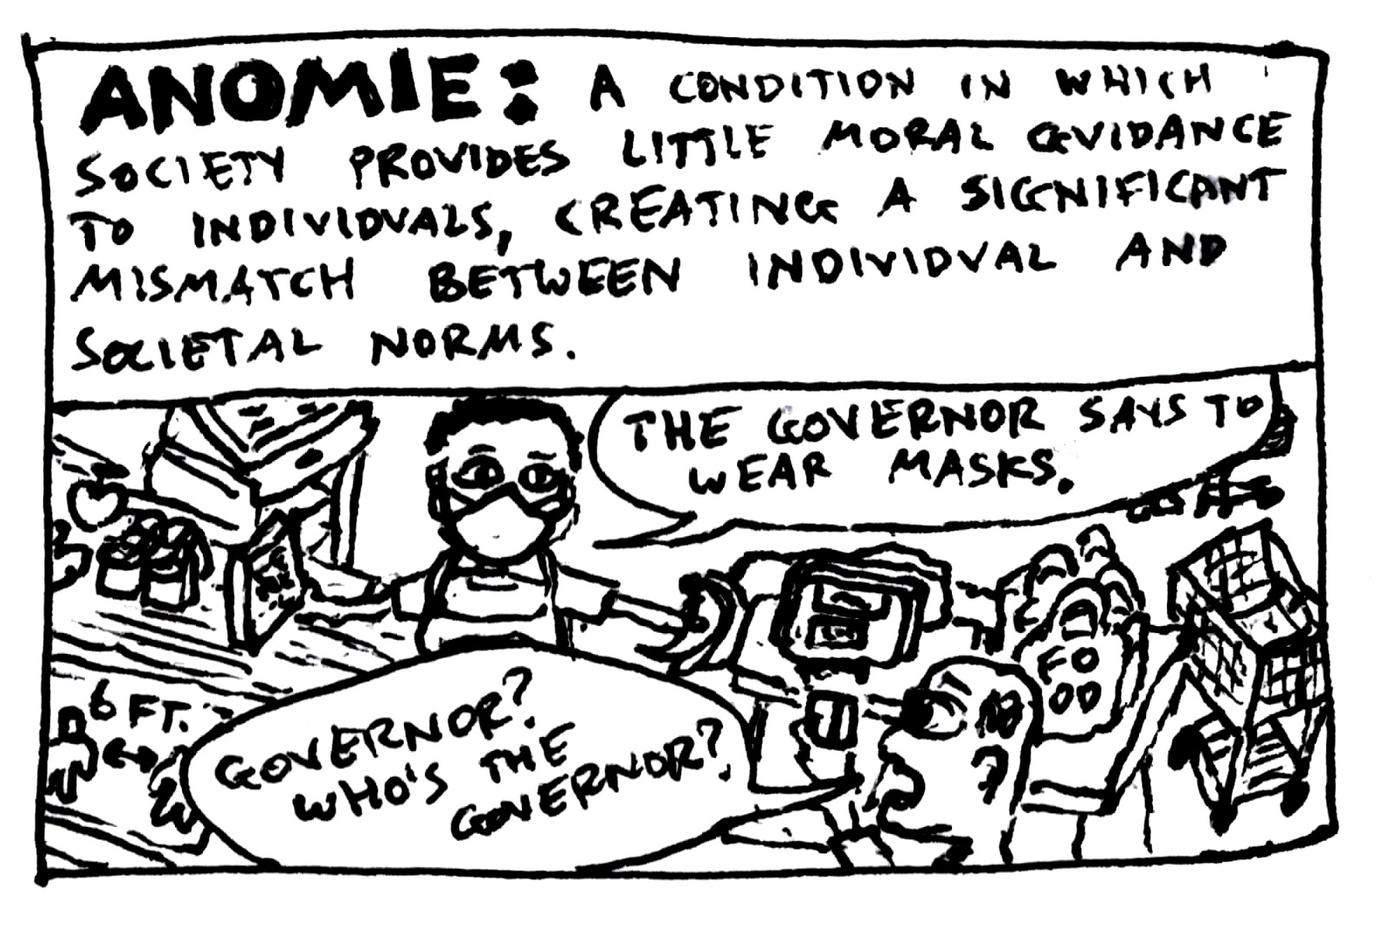 ANOMIE: A CONDITION IN WHICH
SOCIETY PROVIDES LITTLE MORAL GUIDANCE
TO INDIVIDUALS, CREATING A SIGNIFICANT
MISMATCH BETWEEN INDIVIDUAL AND
SOCIETAL NORMS.
THE GOVERNOR SAYS TO
WEAR MASKS.
GOVERNOR?
WHO'S THE
GOVERNOR?
6 FT.
FO
OD